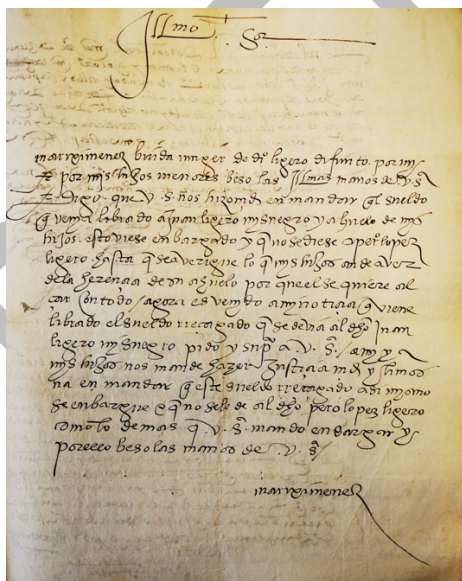 Illmo Sor
mari ximenez biuda muger de dio ligero difunto. por mi
y por mis hijos menores beso las Illmas manos de V. Sª
y digo que V. Sª nos hizo md en mandar ql sueldo
q venia librado a juan ligero mysuegro y ahuelo de mis
hijos. estoviese enbargado y q nosediese a pero lopez
ligero hasta q se averigue lo q mis hijos an de aver
de la herencia de su ahuelo por que el se quiere al
car con todo / agora es venydo a my noticia q viene
librado el sueldo rrecagado q se devia al dho juan
ligero mysuegro pido y supco a V. Sª / a my y a
mis hijos nos mande hazer justicia md y limos
na en mandar q este sueldo rrecagado asi mismo
se enbargue e q no sele de al dho pero lopez ligero
como lo demas q V. Sª mando enbargar y
por ello beso las manos de V. Sª /
mari ximenez